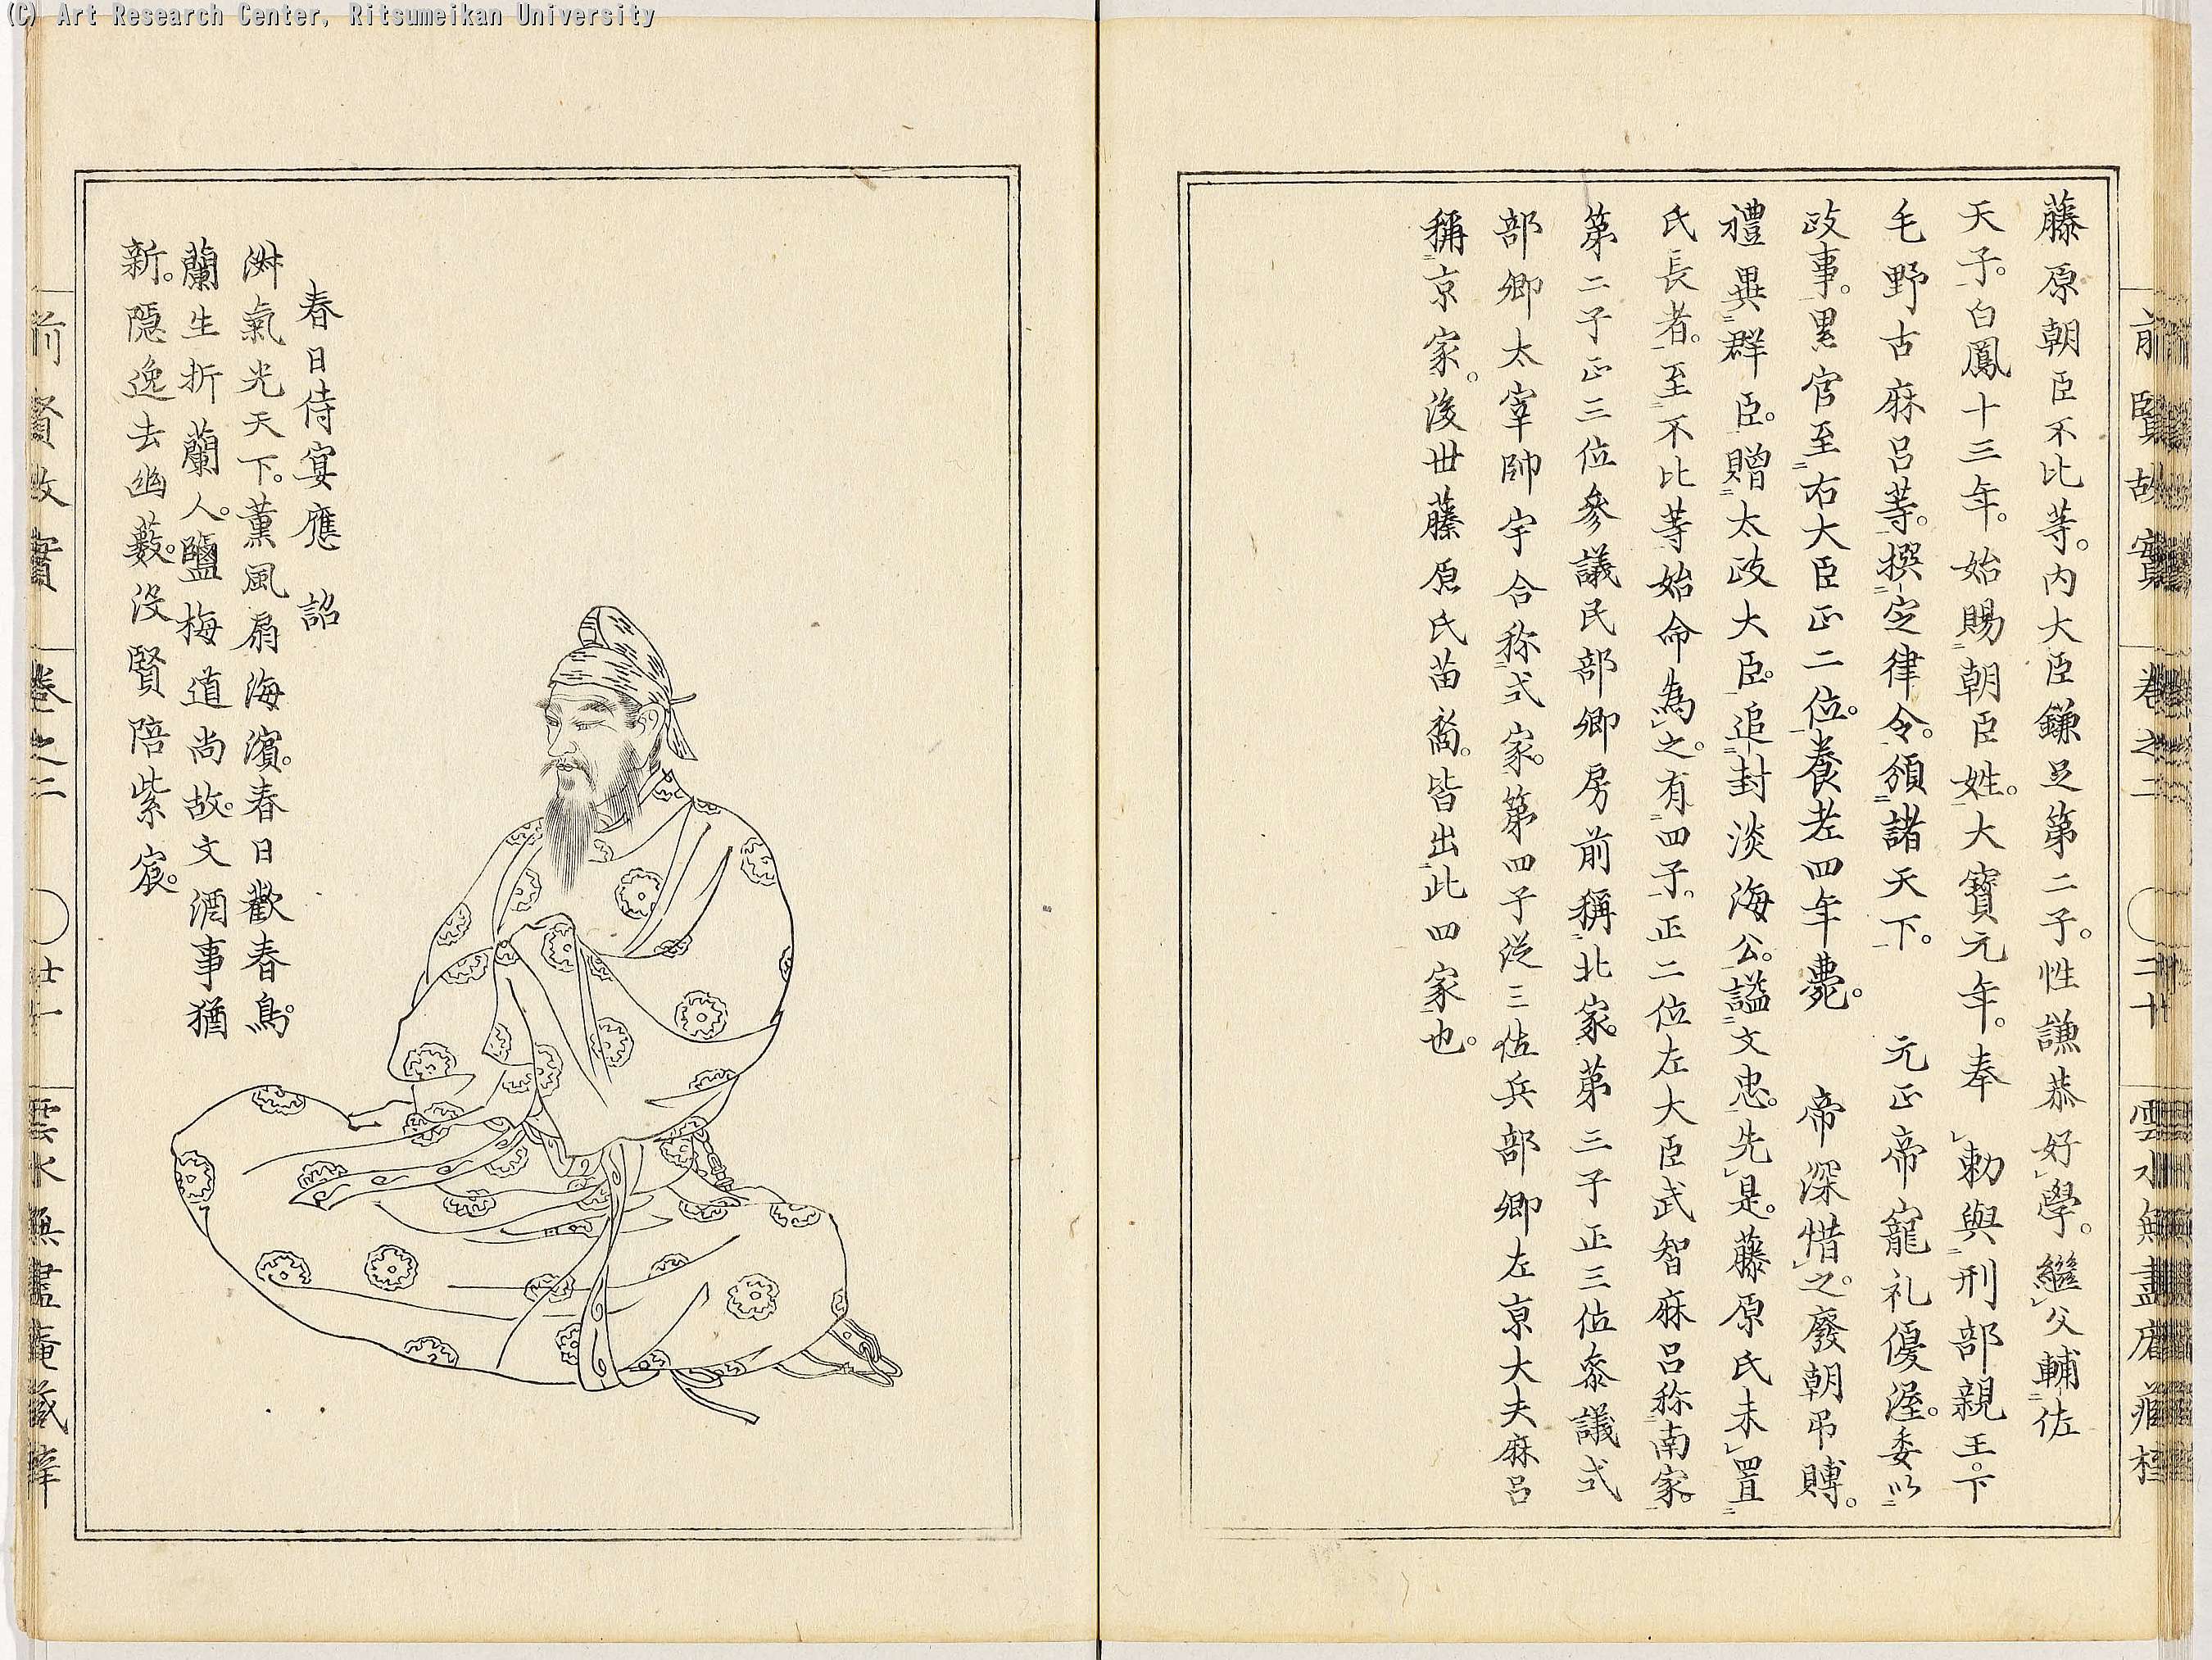 (C) Art Research Center, Ritsumeikan University
前賢故實 卷之二 〇二十 雲水無盡庵藏梓
藤原朝臣不比等。内大臣鎌足第二子。性謙恭好學。繼父輔佐
天子。白鳳十三年。始賜朝臣姓。大寶元年。奉 勅與刑部親王。下
毛野古麻呂等。撰定律令。頒諸天下。 元正帝寵礼優渥。委以
政事。累官至右大臣正二位。養老四年薨。 帝深惜之。廢朝吊賻。
禮異群臣。贈太政大臣。追封淡海公。謚文忠。先是。藤原氏未置
氏長者。至不比等始命為之。有四子。正二位左大臣武智麻呂称南家。
第二子正三位參議民部卿房前稱北家。第三子正三位參議式
部卿太宰帥宇合称式家。第四子從三位兵部卿左京大夫麻呂
稱京家。後世藤原氏苗裔。皆出此四家也。
春日侍宴應 詔
淑氣光天下。薰風扇海濱。春日歡春鳥。
蘭生折蘭人。鹽梅道尚故。文酒事猶
新。隱逸去幽藪。沒賢陪紫宸。
前賢故實 卷之二 〇廿一 雲水無盡庵藏梓